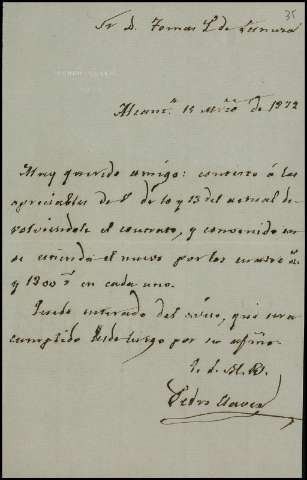 35
Sr D. Tomas P. de
Alcante. 15 Mzo de 1872
Muy querido amigo: contesto á las
apreciables de V. de 10 y 13 del actual de
volviendole el contrato, y convenido en
se estienda el nuevo por los cuatro
y 1200 rs en cada uno.
Quedo enterado del suyo, que sera
cumplido desde luego por su afmo.
Q. S. M. B.
Pedro Claver